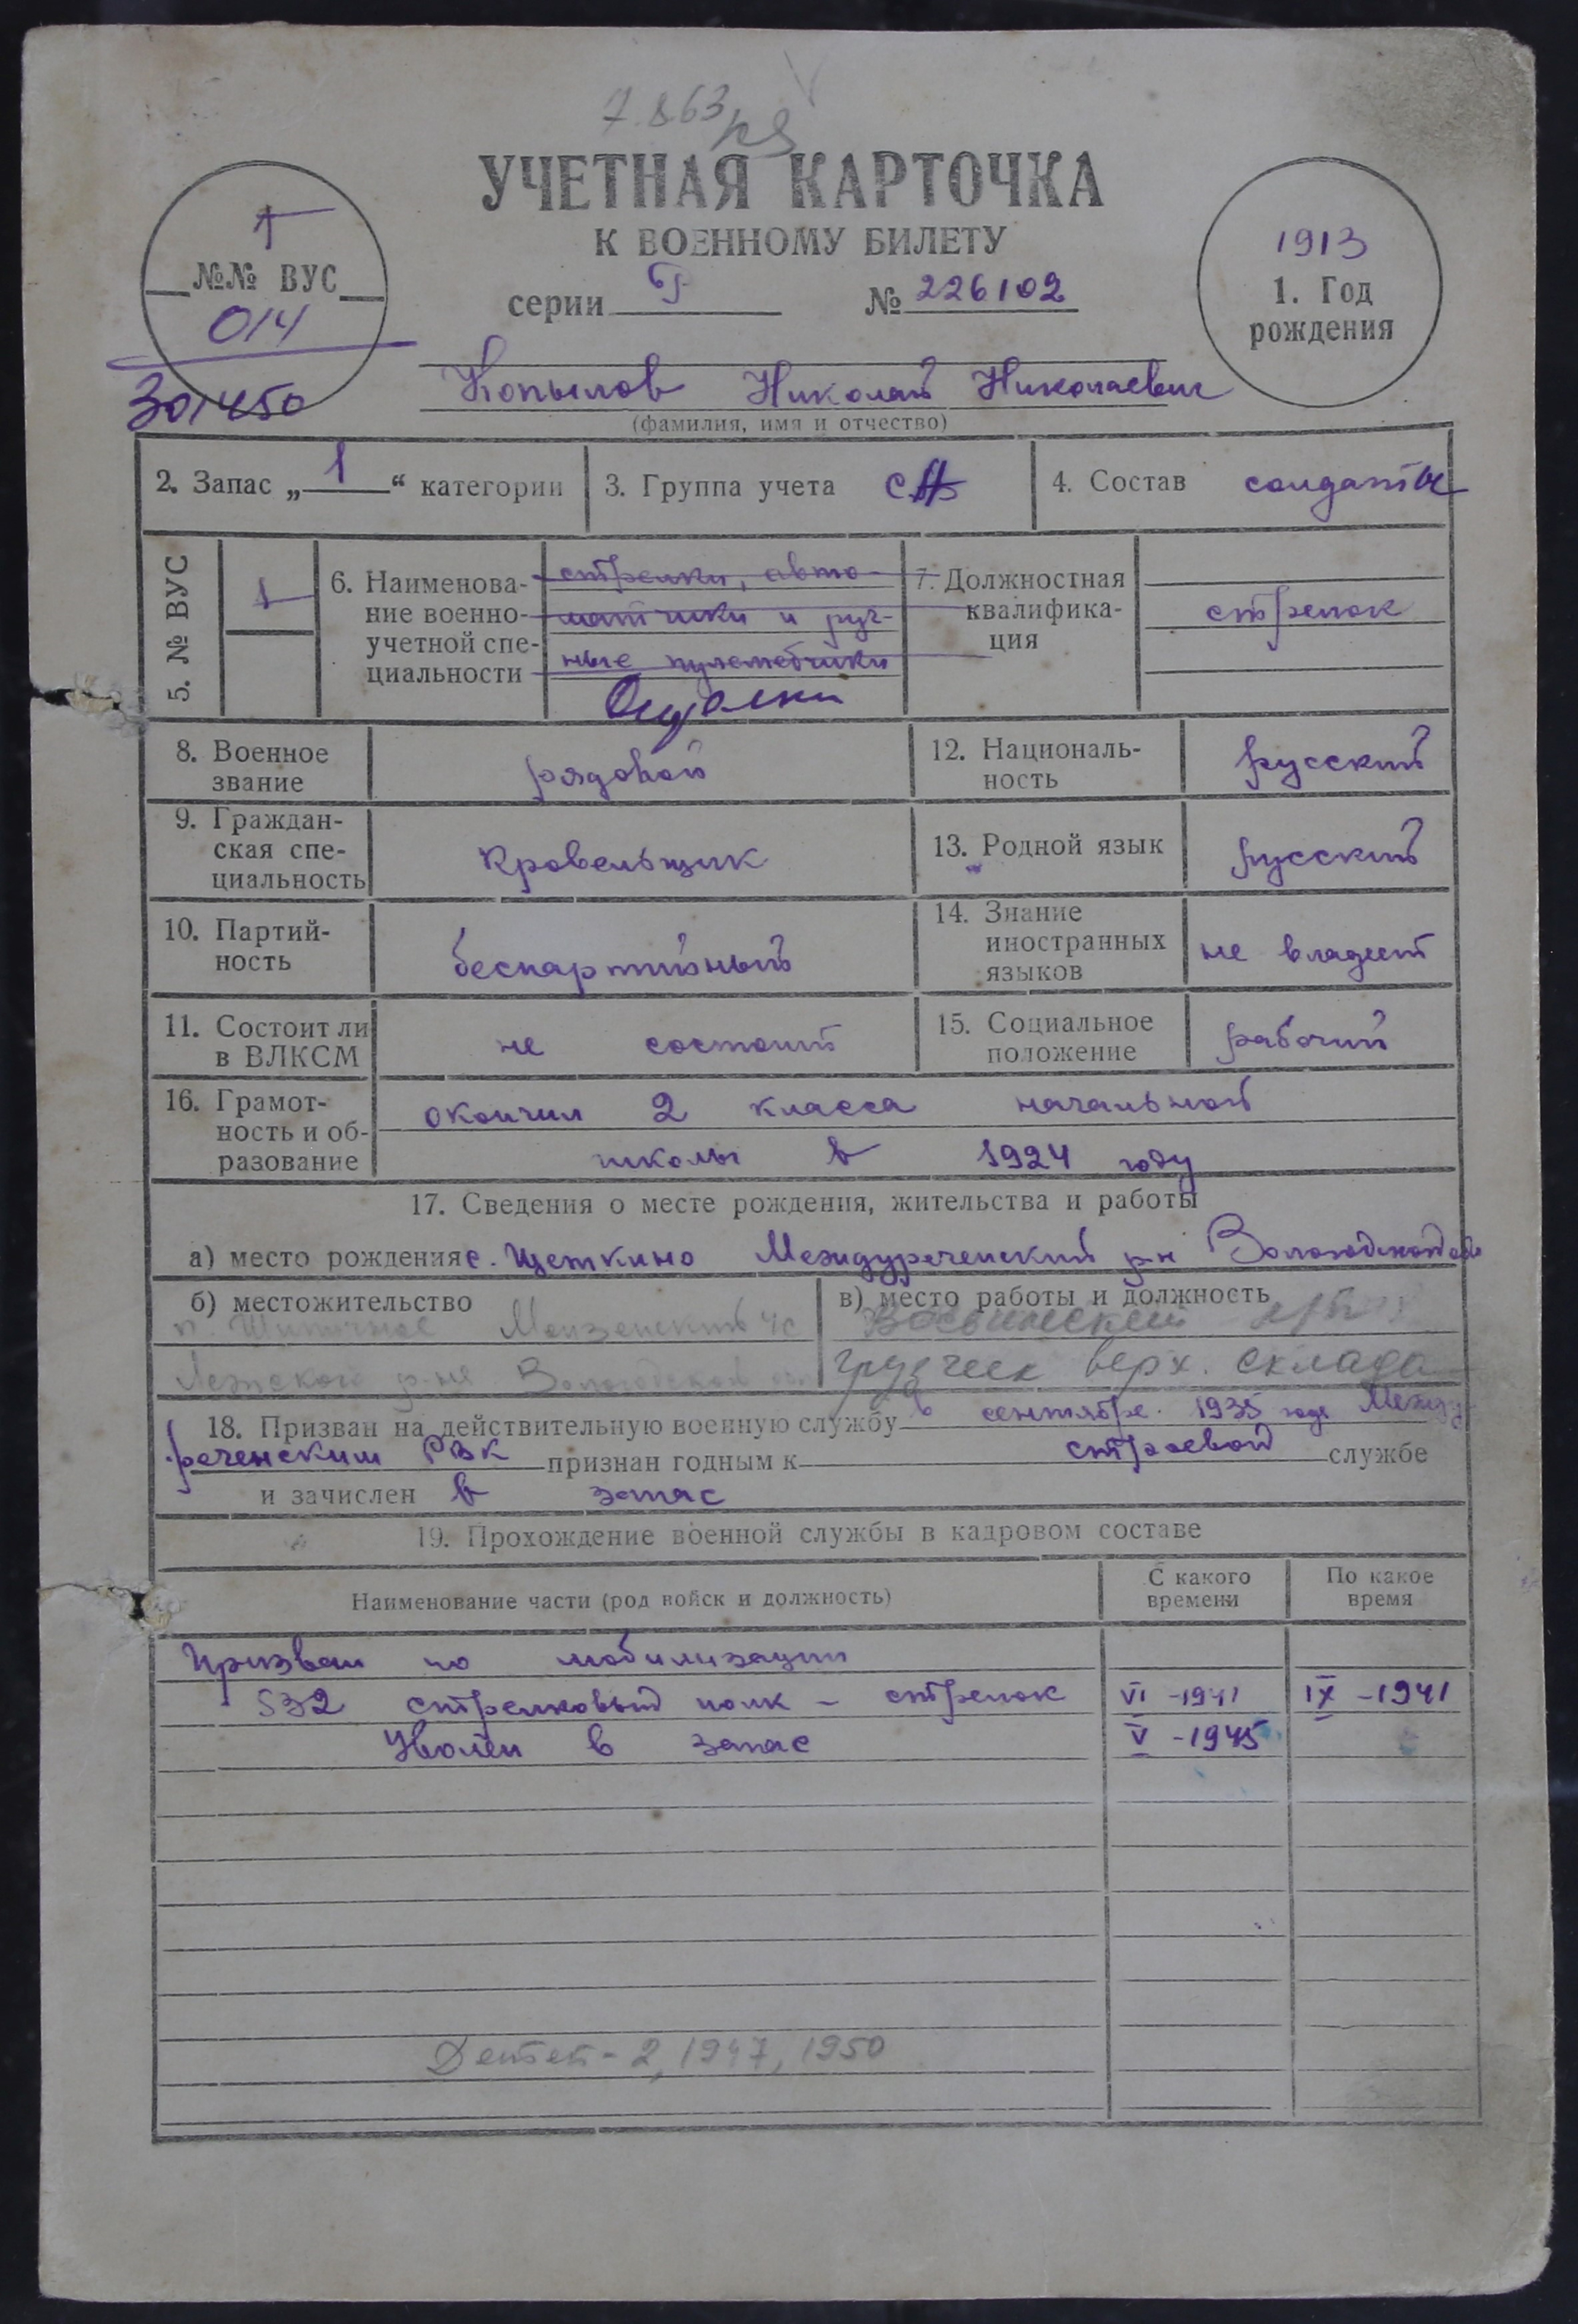 7.863
УЧЕТНАЯ КАРТОЧКА
К ВОЕННОМУ БИЛЕТУ
серии № 226102
1
№№ ВУС
014
301450
1913
1. Год
рождения
Копылов Николай Николаевич
(фамилия, имя и отчество)
2. Запас „ 1 “ категории
3. Группа учета СА
4. Состав солдаты
5. № ВУС
1
6. Наименова-
ние военно-
учетной спе-
циальности
стрелки, авто-
матчики и руч-
ные пулеметчики
7. Должностная
квалифика-
ция
стрелок
8. Военное
звание
рядовой
12. Националь-
ность
русский
9. Граждан-
ская спе-
циальность
кровельщик
13. Родной язык
русский
10. Партий-
ность
беспартийный
14. Знание
иностранных
языков
не владеет
11. Состоит ли
в ВЛКСМ
не состоит
15. Социальное
положение
рабочий
16. Грамот-
ность и об-
разование
окончил 2 класса начальной
школы в 1924 году
17. Сведения о месте рождения, жительства и работы
а) место рождения с. Щеткино Междуреченский р-н Вологодской обл
б) местожительство
Монзенский
Лежского р-на Вологодской обл
в) место работы и должность
грузчик верх. склада
18. Призван на действительную военную службу в сентябре 1935 года Между-
реченским РВК признан годным к строевой службе
и зачислен в запас
19. Прохождение военной службы в кадровом составе
Наименование части (род войск и должность)
С какого
времени
По какое
время
Призван по мобилизации
532 стрелковый полк - стрелок VI -1941 IX -1941
Уволен в запас V -1945
Детей - 2, 1947, 1950